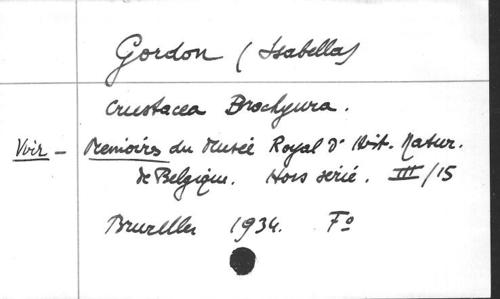 Gordon (Isabella)
Crustacea Brachyura.
Voir - Memoires du Musée Royal d'Hist. Natur.
de Belgique. Hors série. III/15
Bruxelles 1934. Fo